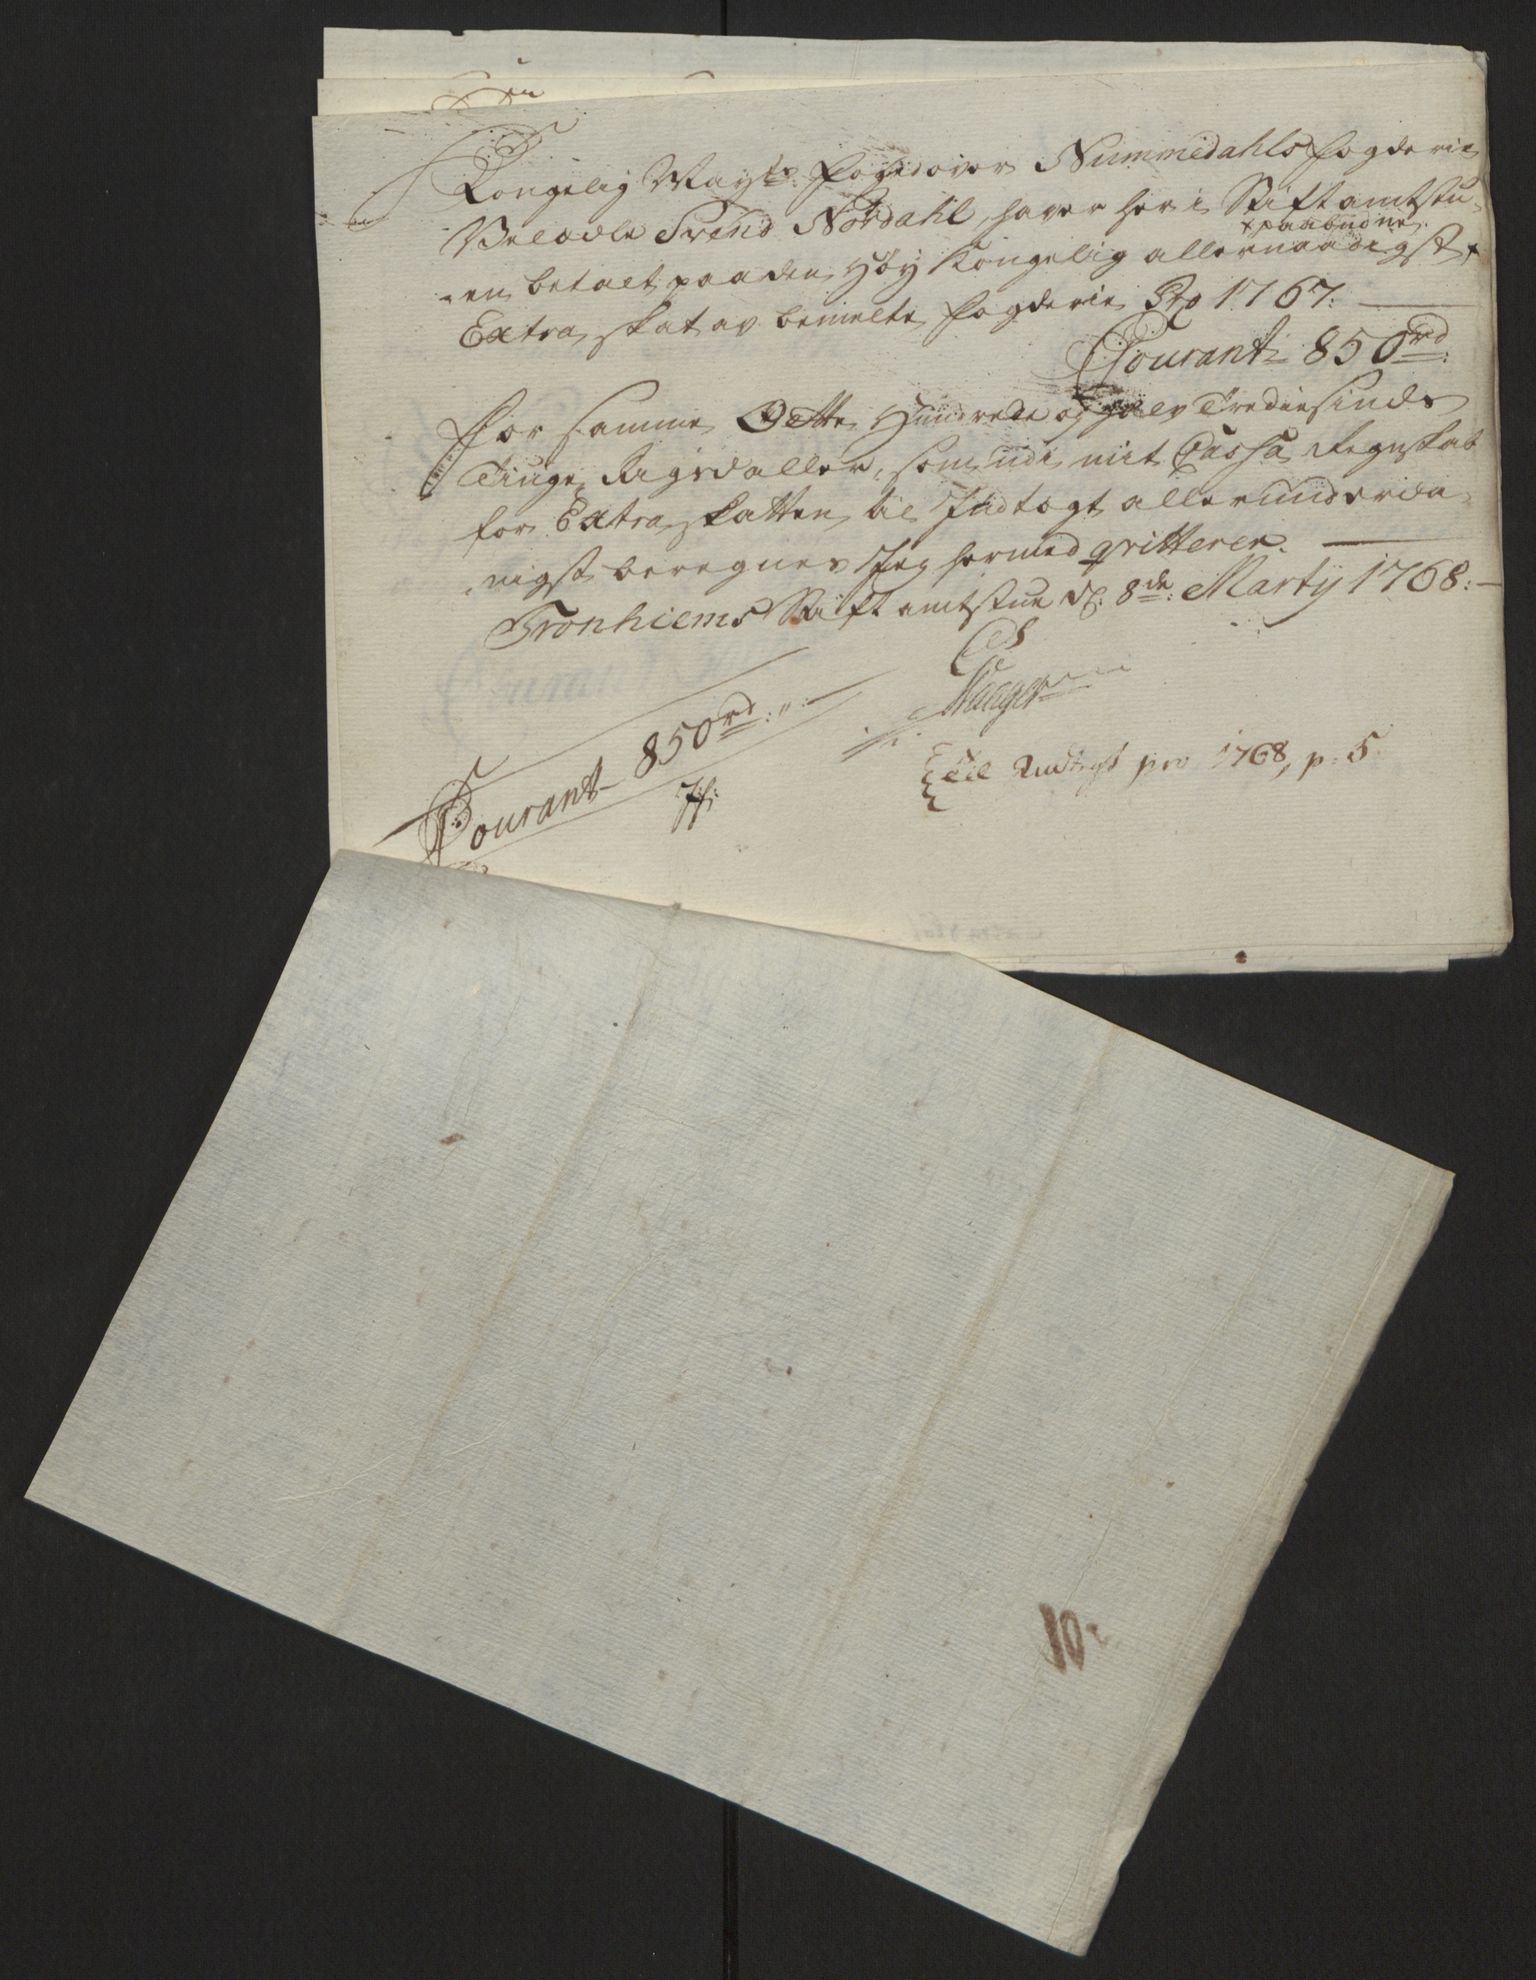 Kongelig Mayts: Foged over Nummedahls Fogderie
Velædle Svend Nordahl, haver her i Stiftamtstu-
xpaabudne.
-en betalt paa den Høy Kongelig allernaadigst x
Extra skat av bemelte Fogderie Pro 1767:
Courant 850 rd:
For samme Otte Hundrede og Halv Trediesinds
Tiuge Rigsdaller, som udi mit Cassa Regnskab
for Extra skatten til Indtægt allerunderda-
-nigst beregnes Jeg hermed qvitterer.
Tronhiems Stiftamtstue d: 8de: Martij 1768:
Courant 850 rd:
til Indtægt pro 1768, p. 5
10